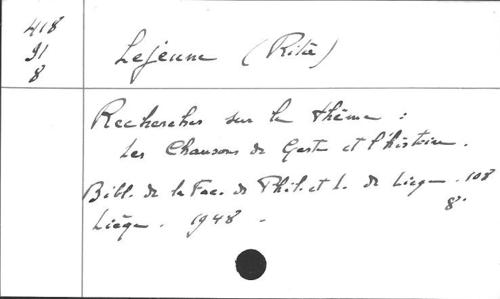 418
91
8
Lejeune (Rita)
Recherches sur le thème :
Les Chansons de Geste et l'histoire.
Bibl. de la Fac. de Phil. et L. de Liège. 108
8°.
Liège. 1948.